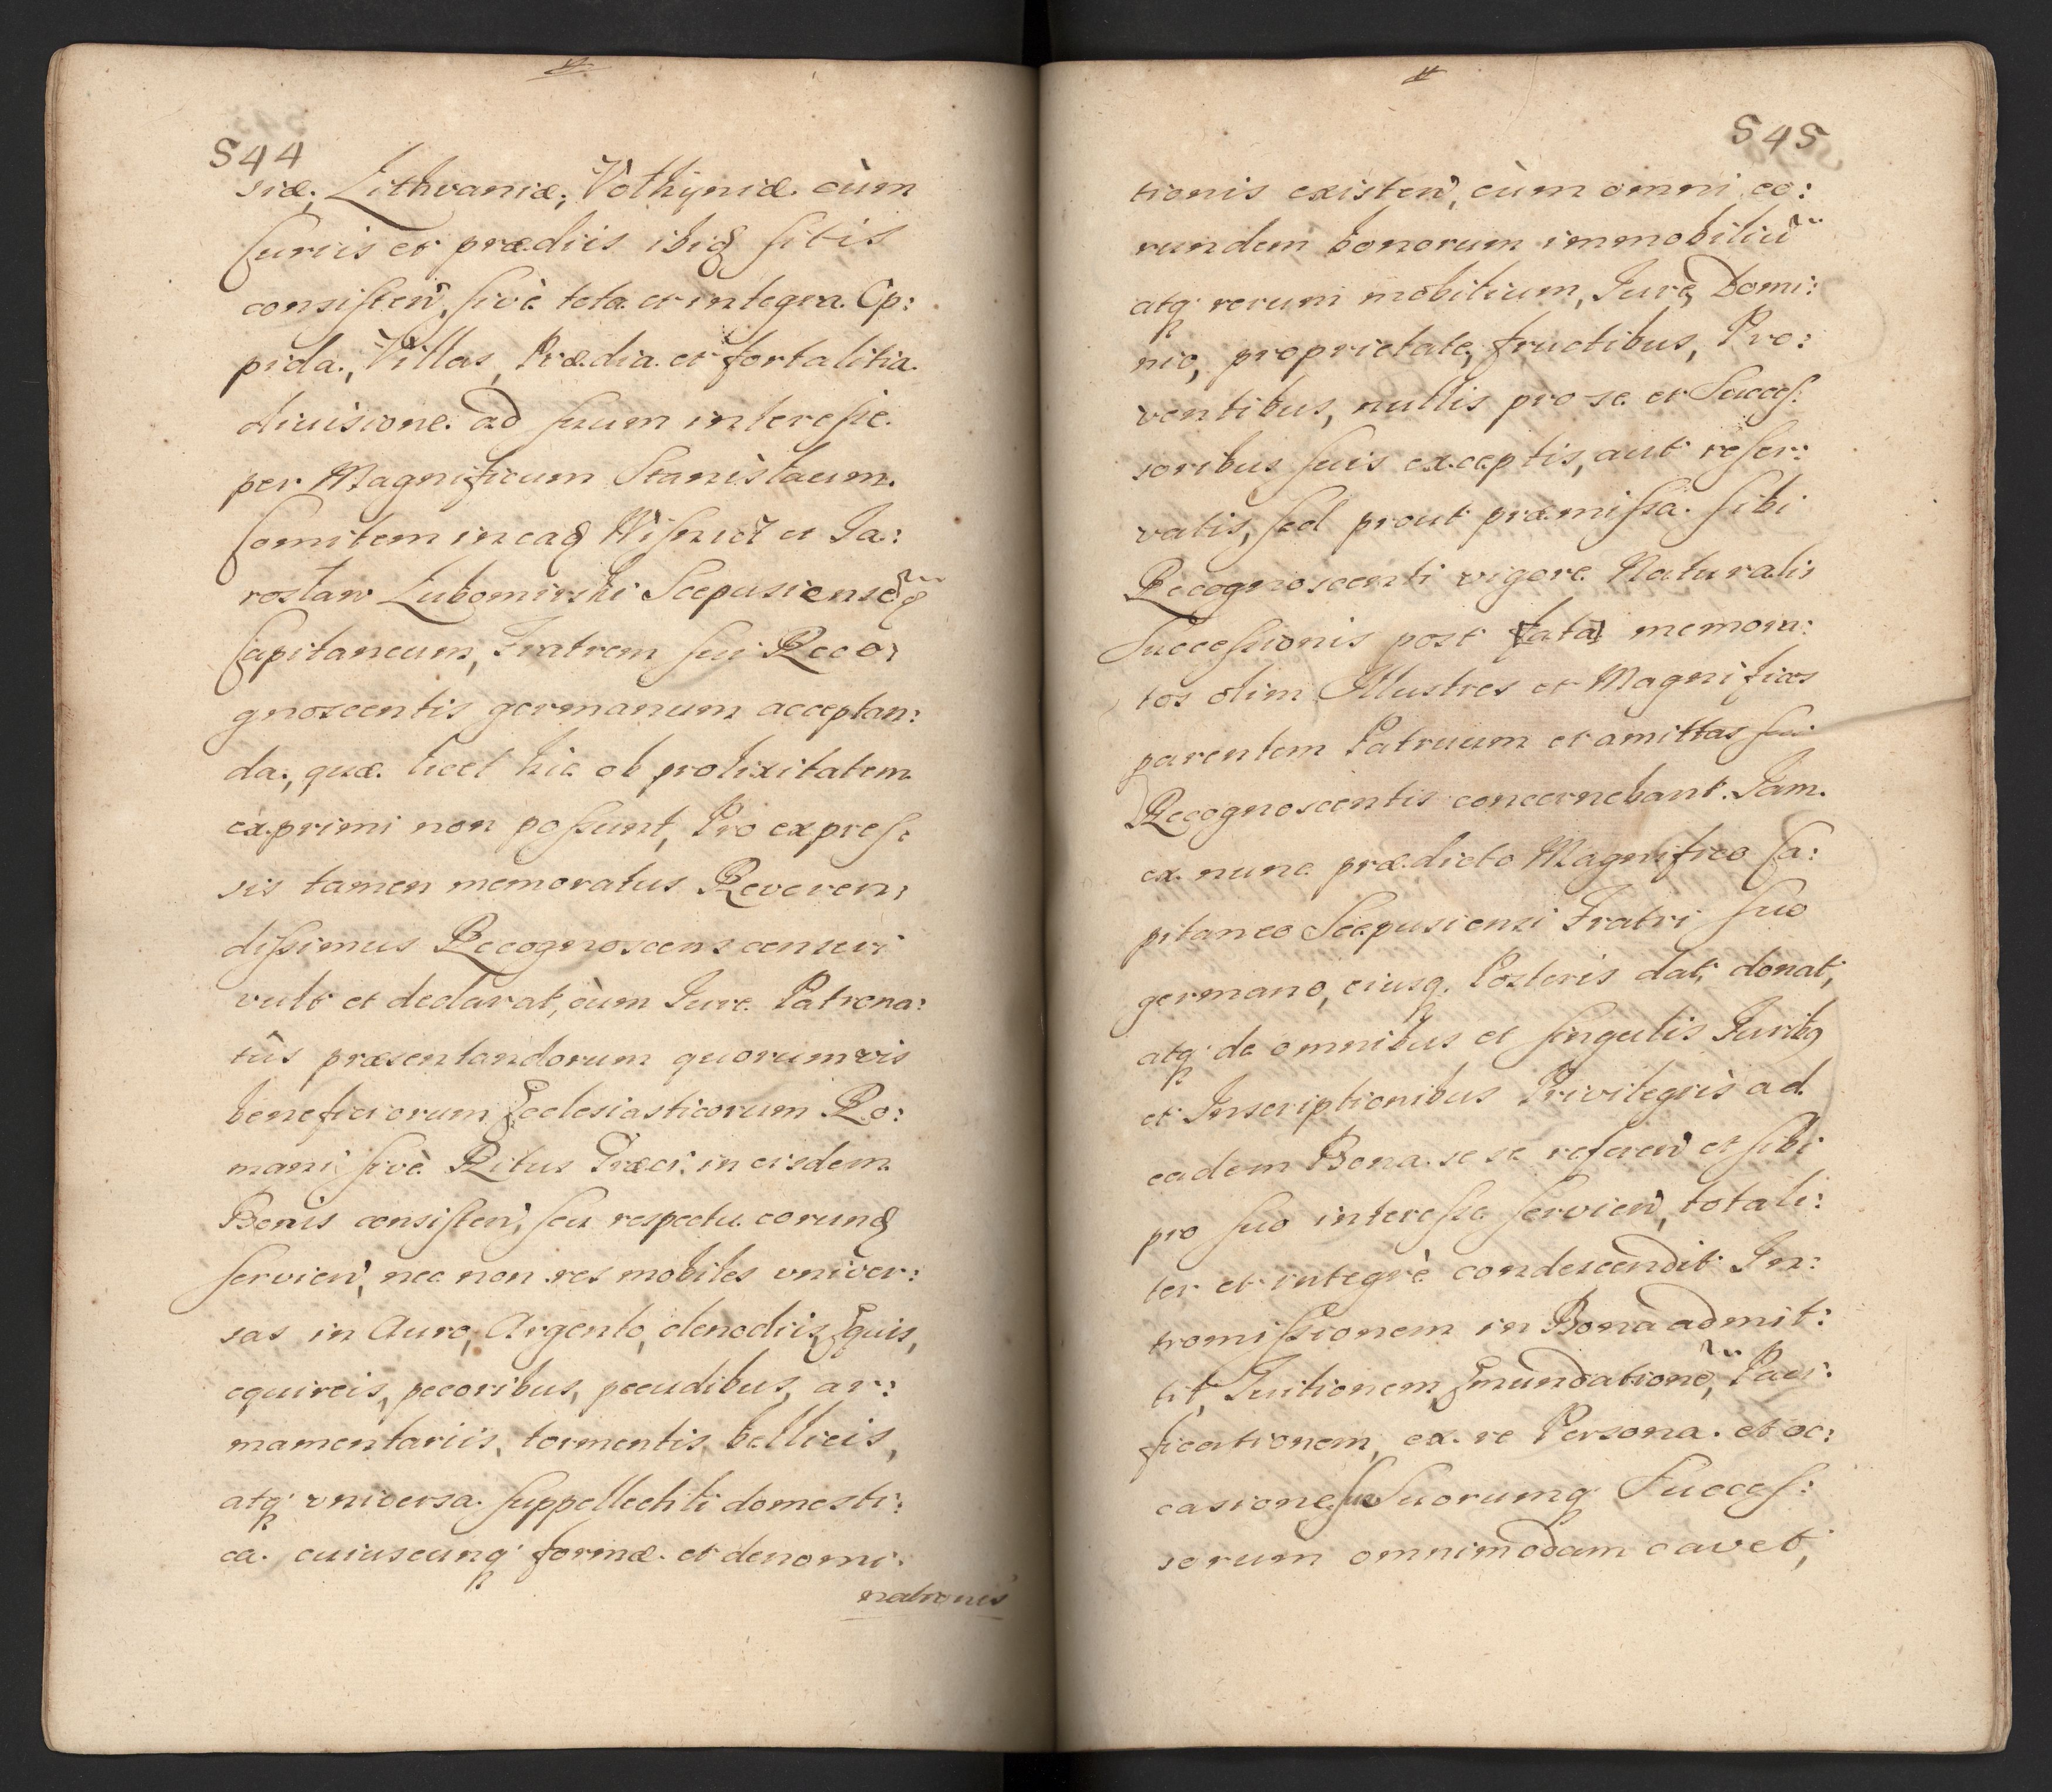 544
siæ, Lithvaniæ, Volhyniæ cùm
Curiis et prædiis ibiq sitis
consisten, sivè tota et integra Op:
pida, Villas, Prædia et fortalitia
divisione ad suum interesse
per Magnificum Stanislaum
Comitem in eaq Wisnicz et Ja:
roslaw Lubomirski Scepusiensēq
Capitaneum, Fratrem sui Reco:
gnoscentis germanum acceptan:
da, quæ licet hic ob prolixitatem
exprimi non possunt, Pro expres:
sis tamen memoratus Reveren:
dissimus Recognoscens censeri
vult et declarat, cùm Jure Patrona:
tûs præsentandorum quorumvis
beneficiorum Ecclesiasticorum Ro:
mani sivè Ritus Græci in eisdem
Bonis consisten, seu respectu eorunq
servien, nec non res mobiles univer:
sas in Auro, Argento, clenodiis, Equis,
equireis, pecoribus, pecudibus, ar:
mamentariis, tormentis bellicis,
atq universa suppellectili domesti:
ca cuiuscunq formæ et denomi:
nationis
545
tionis existen, cùm omni eo:
rundem bonorum immobiliū
atq rerum mobilium, Jure, Domi:
nio, proprietate, fructibus, Pro:
ventibus, nullis pro se et Succes:
soribus suis exceptis, aut reser:
vatis, sed prout præmissa sibi
Recognoscenti vigore Naturalis
Successionis post fata memora:
tos olim Illustres et Magnificos
parentem Patruum et amittas sui
Recognoscentis concernebant. Jam
ex nunc prædicto Magnifico Ca:
pitaneo Scepusiensi Fratri suo
germano, eiusq Posteris dat, donat,
atq de omnibus et singulis Juribq
et Inscriptionibus Privilegiis ad
eadem Bona se se referen et sibi
pro suo interesse servien, totali:
ter et integrè condescendit In:
tromissionem in Bona admit:
tit, Tuitionem, Emundationē, Paci:
ficationem, ex re Persona et oc:
casione sui Suorumq Succes:
sorum omnimodam cavet,